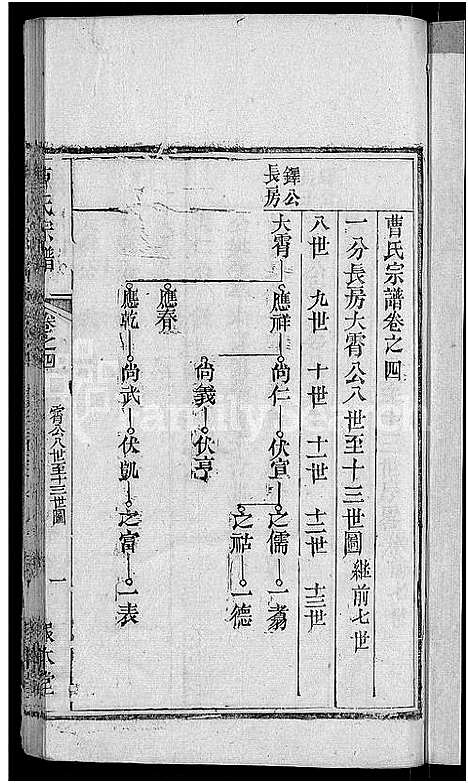 曹氏宗譜卷之四
一分長房大霄公八世至十三世圖 繼前七世
八世 九世 十世 十一世 十二世 十三世
鐸公
長房
大霄 應祥 尚仁 伏宜 之儒 一鶵
之祜 一德
尚義 伏亨
應春
應乾 尚武 伏凱 之富 一表
氏宗譜 卷之四 霄公八世至十三世圖 一 本堂